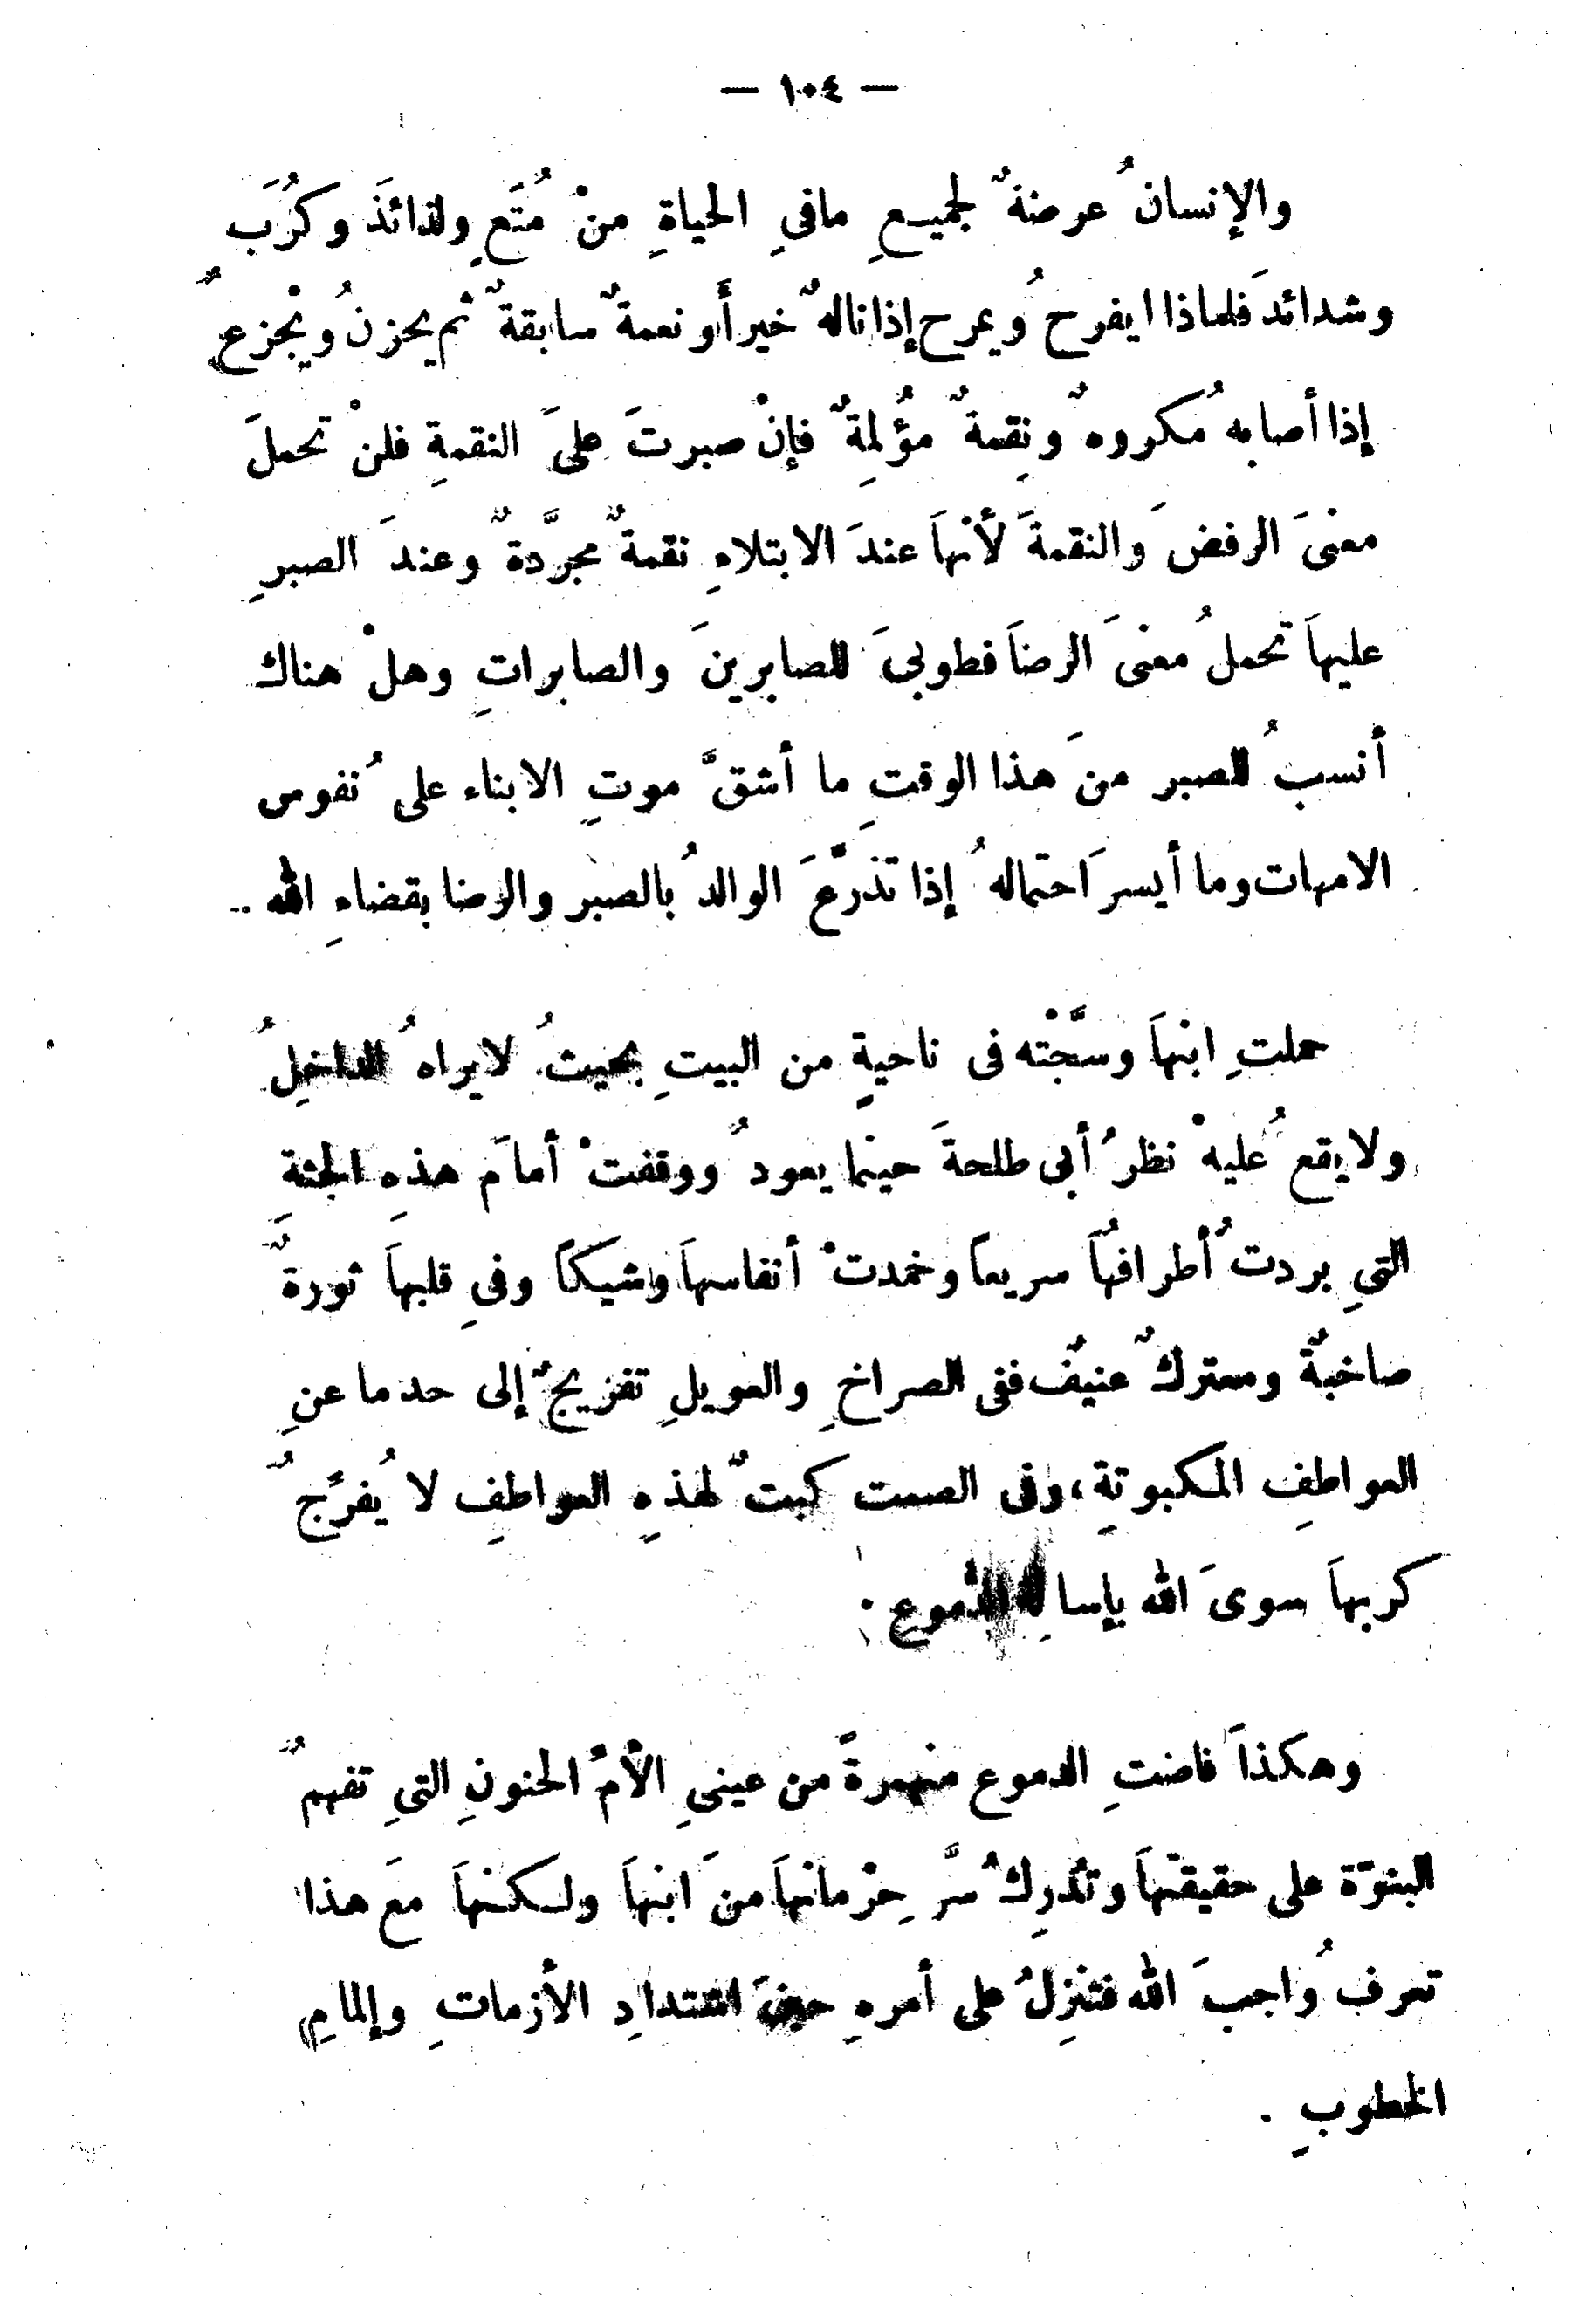 — ١٠٤ —
والإنسانُ عرضةٌ لجميعِ مافىِ الحياةِ منْ مُتَعٍ ولذائذَ وكُرَب
وشدائدَ فلماذا ايفرحُ ويمرح إذا نالهٌ خير أَو نعمةٌ سابقةٌ ثم يحزنُ ويْجزعٌ
إذا أصابهُ مكروهٌ ونِقمةٌ مؤُلمِةٌ فإنْ صبرتَ علىَ النقمةِ فلنْ تحملَ
معنىَ الرفضَ والنقمةَ لأنهاَ عندَ الابتلاءِ نقمةٌ مجرَّدةٌ وعندَ الصبرِ
عليهاَ تحملُ معنىَ الرضاَ فطوبىَ للصابرينَ والصابراتِ وهلْ هناك
أنسبُ للصبر منَ هذا الوقتِ ما أشقَّ موتِ الابناء علىُ نفوس
الامهات وما أيسرَ احتمالهُ إذا تذرَّعَ الوالدُ بالصبر والرضا بقضاءِ الله ..
حملتِ ابنهاَ وسَّجْته فى ناحيةٍ من البيتِ بحيثُ لايراهُ الداخلِ ُ
ولايقعُ عليهْ نظرُ أبى طلحةَ حينما يعودُ ووقفتْ أمامَ هذهِ الجثةِ
التىِ بردتُ أطرافهُاَ سريعاً وخمدتْ أنفاسهاَ وشيكاً وفىِ قلبهاَ ثورةٌ
صاخبةٌ ومعتركٌ عنيفٌ ففى الصراخِ والعويلِ تفريجٌ إلى حد ما عنِ
العواطفِ المكبوتةِ، وفى الصمت كبتٌ لهذهِ العواطفِ لا يُفرَّجُ
كربهاَ سوىَ الله بإسالة الدموع .
وهكذاَ فاضتِ الدموع منهمرةً من عينىِ الأُمُّ الحنونِ التىِ تفهمُ
البنوّة على حقيقتهاَ وتُدرِكُ سَّر حِرْمانهاَ منَ ابنهاَ ولكنهاَ معَ هذا
تعرفُ واجبَ الله فتنزِلُ على أمرهِ حينَ اشتدادِ الأزماتِ وإلمامِ
الخطوبِ .